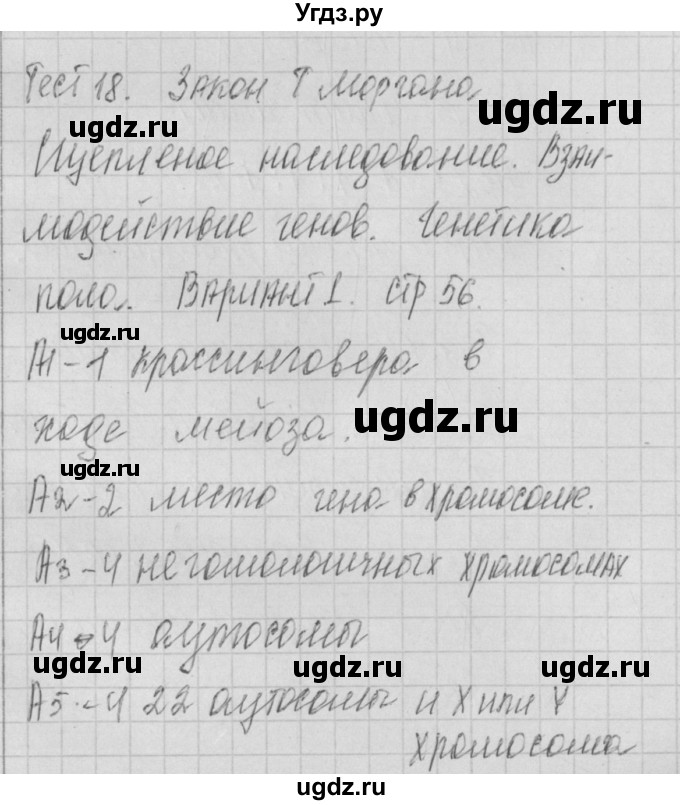 Угдз.ру
Тест 18. Закон Т Моргана
ugdz.ru
ugdz.ru
Сцепленое наследование. Взаи-
модействие генов. Генетика
ugdz.ru
ugdz.ru
пола. Вариант 1. стр 56.
ugdz.ru
А1-1 кроссинговера в
ugdz.ru
ходе мейоза.
ugdz.ru
А2-2 место гена в хромосоме.
А3-4 негомологичных хромосомах
А4-4 аутосомы
ugdz.ru
ugdz.ru
ugdz.ru
А5-4 22 аутосомы и X или Y
хромосома
ugdz.ru